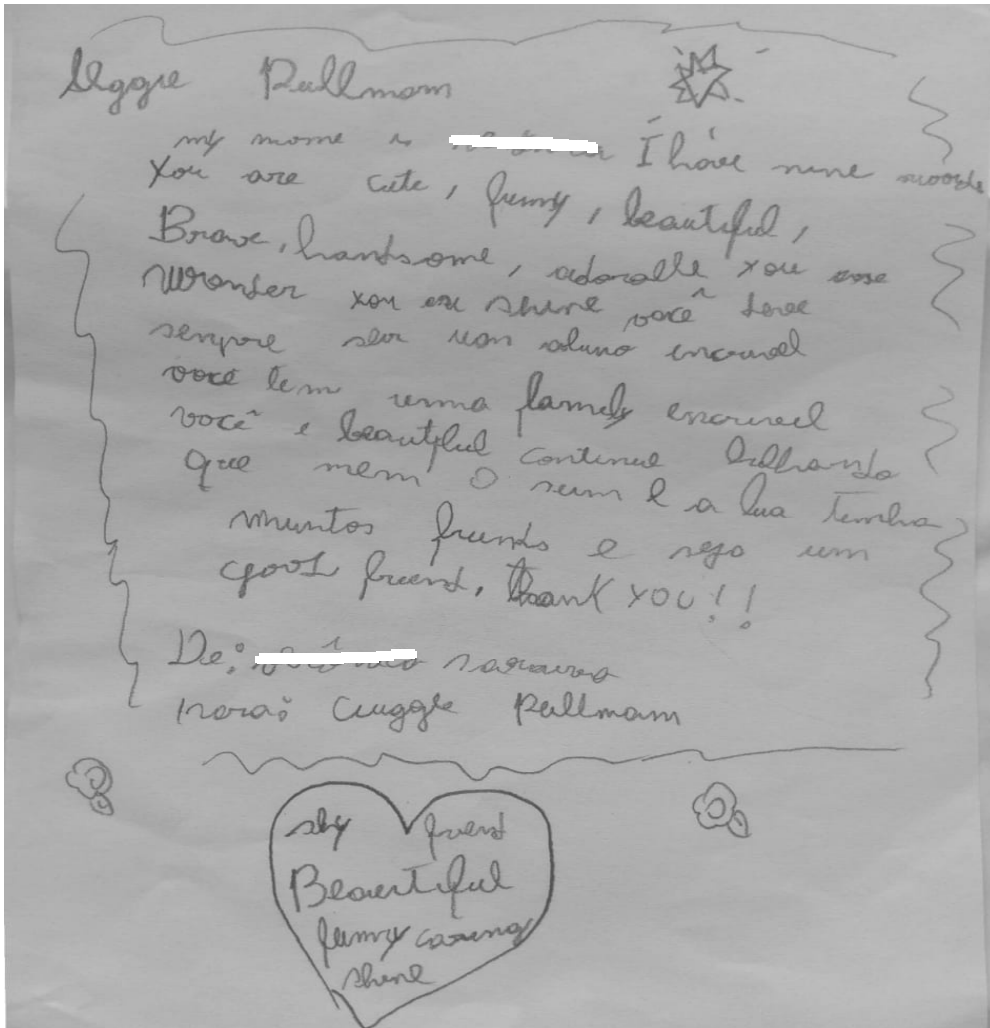 Aggie Pullmam
my mome is I have nine
You are cute, funny, beautiful,
Brave, handsome, adoralle you are
Wronder you are shine você deve
sempre ser um aluno encruvel
você tem umma famely encruvel
você e beautyful continue brilhando
que nem o sum e a lua tenha
muntos friends e seja um
good friend, thank YOU!!
De:
para: Auggie Pullmam
shy friend
Beautiful
funny caring
shine